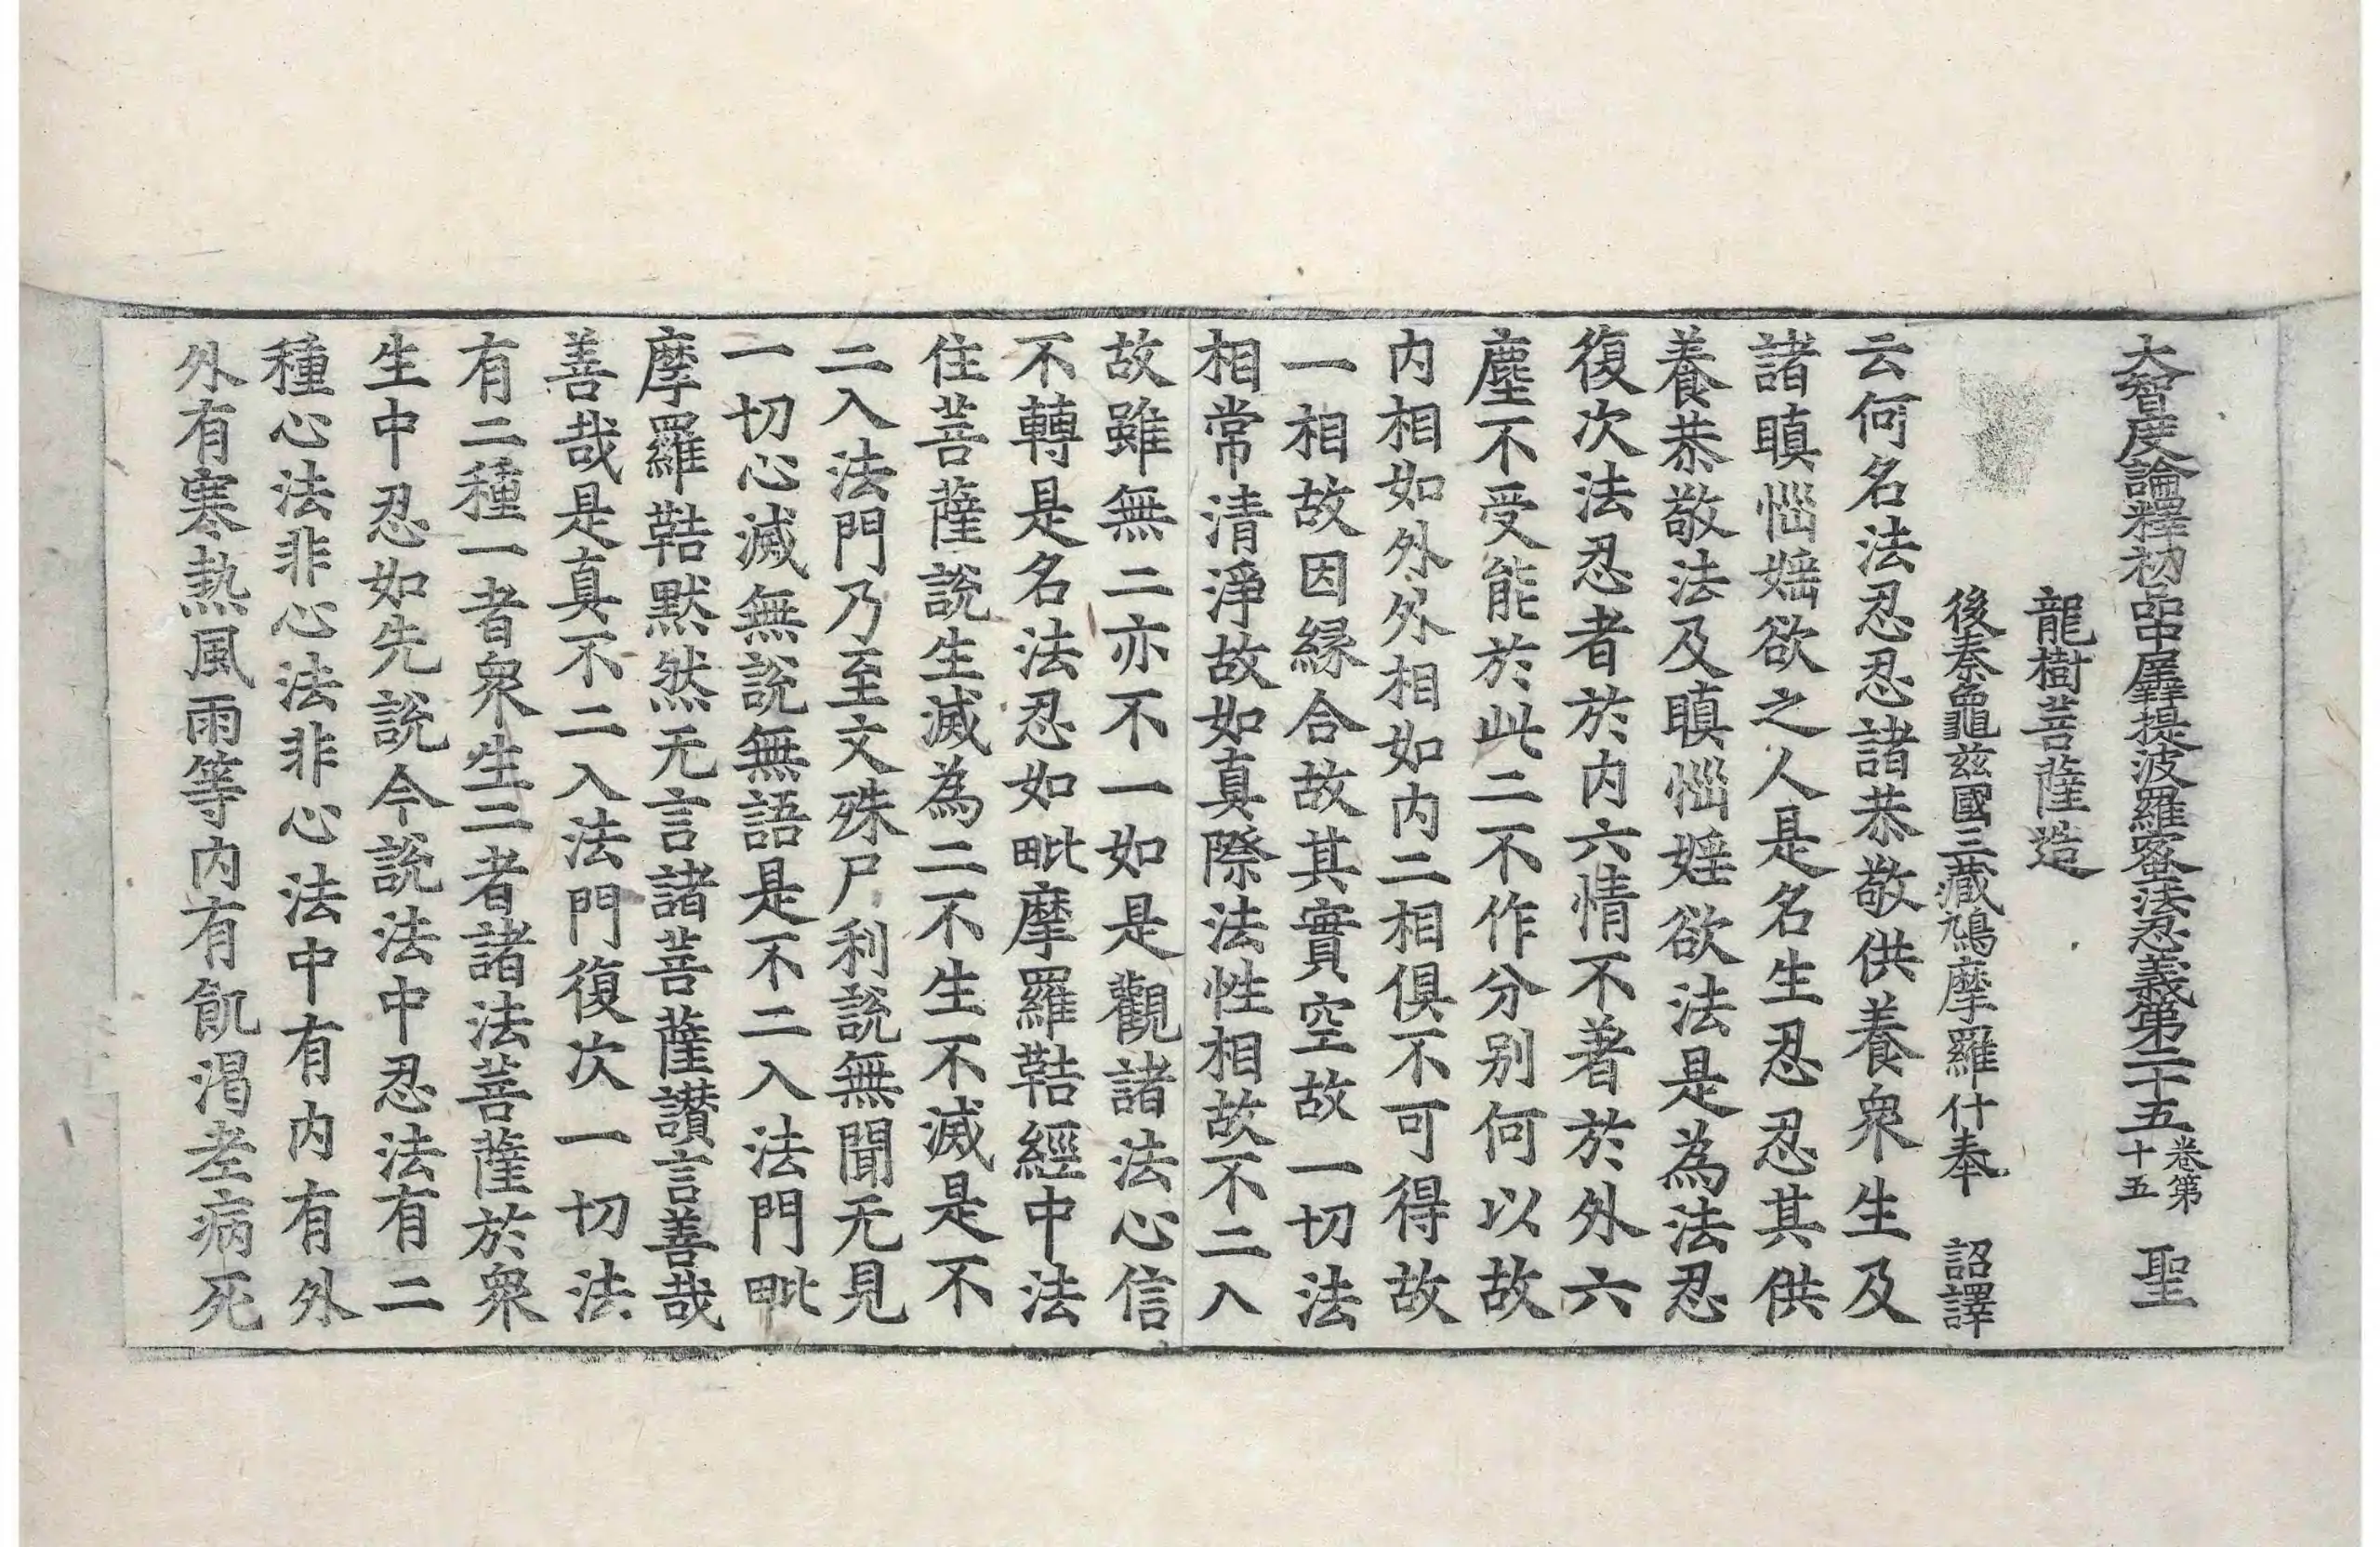 大智度論釋初品中羼提波羅蜜法忍義第二十五 卷第十五 聖
龍樹菩薩造
後秦龜茲國三藏鳩摩羅什奉 詔譯
云何名法忍忍諸恭敬供養衆生及
諸瞋惱婬欲之人是名生忍忍其供
養恭敬法及瞋惱婬欲法是為法忍
復次法忍者於内六情不著於外六
塵不受能於此二不作分别何以故
内相如外外相如内二相俱不可得故
一相故因縁合故其實空故一切法
相常清淨故如真際法性相故不二入
故雖無二亦不一如是觀諸法心信
不轉是名法忍如毗摩羅鞊經中法
住菩薩說生滅為二不生不滅是不
二入法門乃至文殊尸利說無聞无見
一切心滅無說無語是不二入法門毗
摩羅鞊默然无言諸菩薩讃言善哉
善哉是真不二入法門復次一切法
有二種一者衆生二者諸法菩薩於衆
生中忍如先說今說法中忍法有二
種心法非心法非心法中有内有外
外有寒熱風雨等内有飢渴老病死